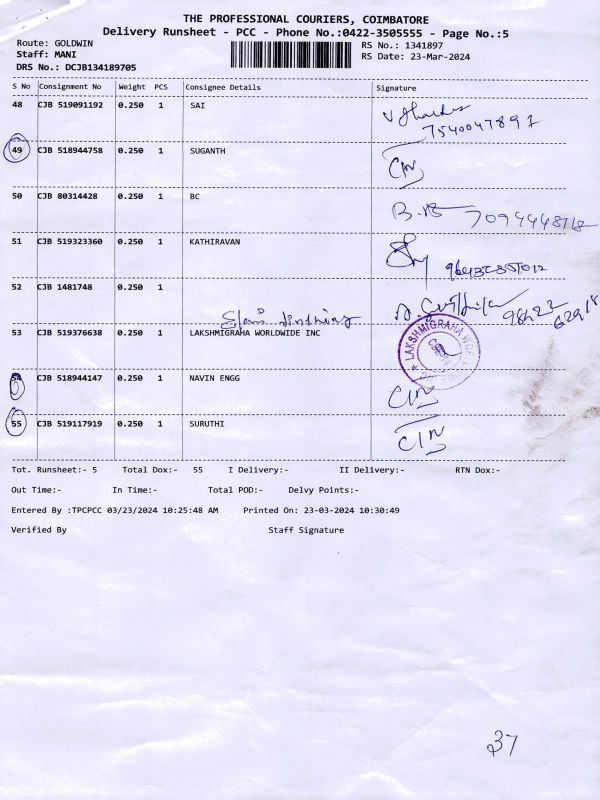 THE PROFESSIONAL COURIERS, COIMBATORE
Delivery Runsheet - PCC - Phone No.:0422-3505555 - Page No.:5
Route: GOLDWIN
RS No.: 1341897
Staff: MANI
RS Date: 23-Mar-2024
DRS No.: DCJB134189705
S No Consignment No Weight PCS Consignee Details Signature
48 CJB 519091192 0.250 1 SAI
7540047897
49 CJB 518944758 0.250 1 SUGANTH
50 CJB 80314428 0.250 1 BC
7094448718
51 CJB 519323360 0.250 1 KATHIRAVAN
52 CJB 1481748 0.250 1
53 CJB 519376638 0.250 1 LAKSHMIGRAHA WORLDWIDE INC
54 CJB 518944147 0.250 1 NAVIN ENGG
55 CJB 519117919 0.250 1 SURUTHI
Tot. Runsheet:- 5 Total Dox:- 55 I Delivery:- II Delivery:- RTN Dox:-
Out Time:- In Time:- Total POD:- Delvy Points:-
Entered By :TPCPCC 03/23/2024 10:25:48 AM Printed On: 23-03-2024 10:30:49
Verified By Staff Signature
37